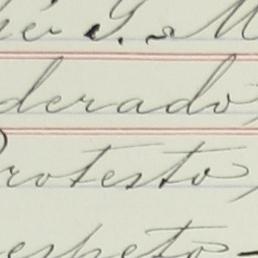 S. M
derado
rotesto
espeto